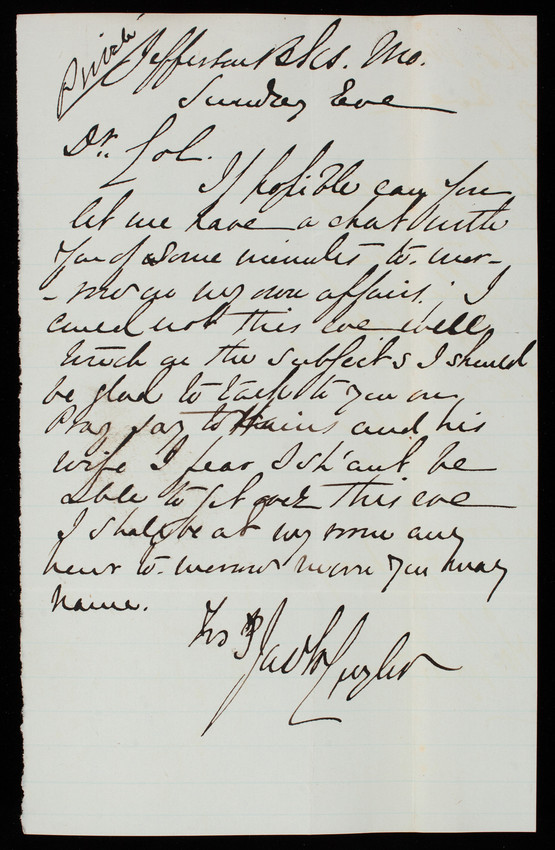 Private
Jefferson Bks. Mo.
Sunday Eve
Dr. Col.
If possible can you
let me have a chat with
you of some minutes to-mor-
-row on my own affairs; I
could not this eve well
touch on the subjects I should
be glad to talk to you on
Pray say to Hains and his
wife I fear I sh'ant be
able to get over this eve
I shall be at my room any
hour to-morrow morn you may
name.
Yrs